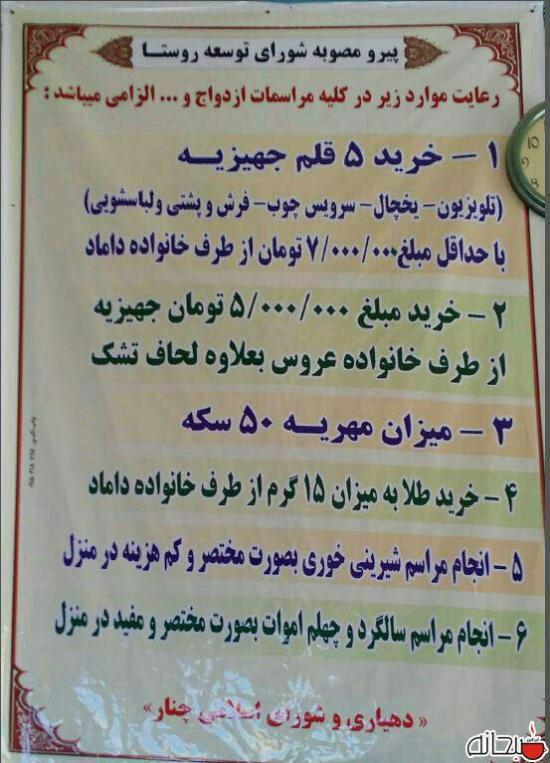 پیرو مصوبه شورای توسعه روستا
رعایت موارد زیر در کلیه مراسمات ازدواج و ... الزامی میباشد :
۱ - خرید ۵ قلم جهیزیه
(تلویزیون - یخچال - سرویس چوب - فرش و پشتی ولباسشویی)
با حداقل مبلغ ۷/۰۰۰/۰۰۰ تومان از طرف خانواده داماد
۲ - خرید مبلغ ۵/۰۰۰/۰۰۰ تومان جهیزیه
از طرف خانواده عروس بعلاوه لحاف تشک
۳ - میزان مهریه ۵۰ سکه
۴ - خرید طلا به میزان ۱۵ گرم از طرف خانواده داماد
۵ - انجام مراسم شیرینی خوری بصورت مختصر و کم هزینه در منزل
۶ - انجام مراسم سالگرد و چهلم اموات بصورت مختصر و مفید در منزل
« دهیاری و شورای اسلامی چنار »
صبحانه